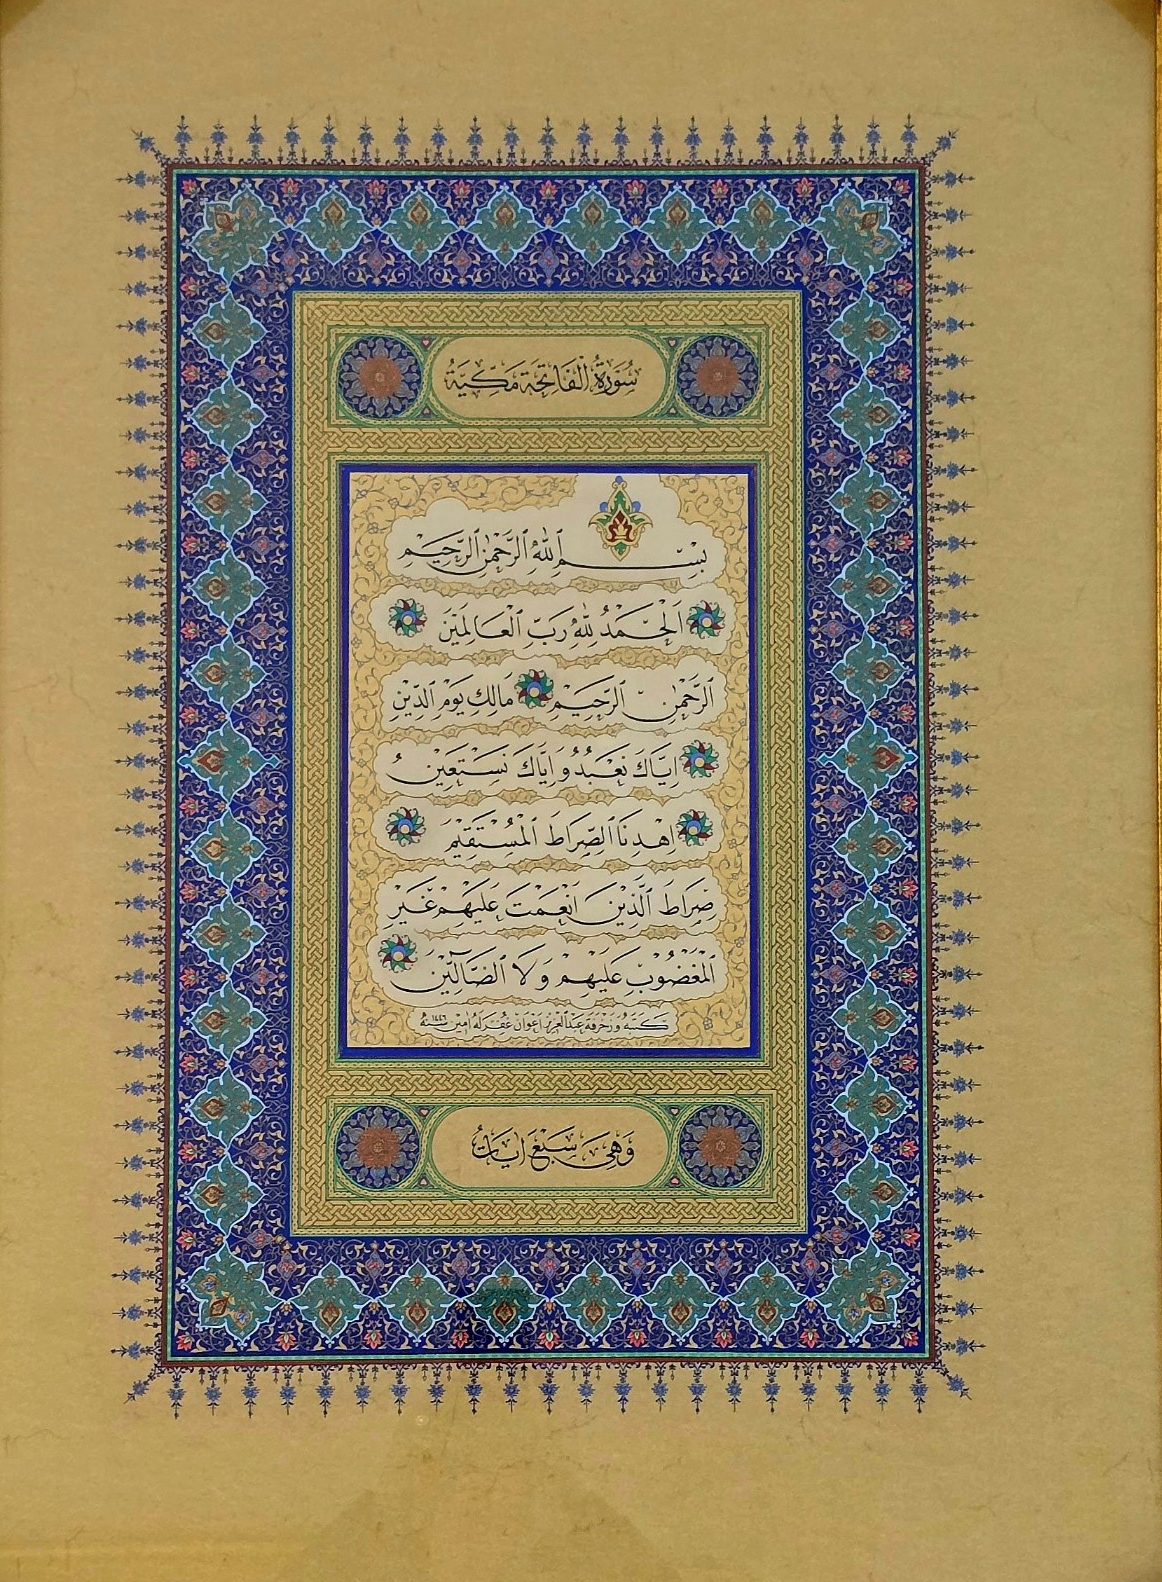 سُورَةُ الْفَاتِحَةِ مَكِّيَّةٌ
بِسْمِ اللّٰهِ الرَّحْمٰنِ الرَّحِيمِ
اَلْحَمْدُ لِلّٰهِ رَبِّ الْعَالَمِينَ
اَلرَّحْمٰنِ الرَّحِيمِ مَالِكِ يَوْمِ الدِّينِ
اِيَّاكَ نَعْبُدُ وَاِيَّاكَ نَسْتَعِينُ
اِهْدِنَا الصِّرَاطَ الْمُسْتَقِيمَ
صِرَاطَ الَّذِينَ اَنْعَمْتَ عَلَيْهِمْ غَيْرِ
الْمَغْضُوبِ عَلَيْهِمْ وَلَا الضَّالِّينَ
كتبه وزخرفه عبد العزيز اعوان غفر له امين سنة ١٤٤٦
وَهِيَ سَبْعُ اٰيَاتٍ